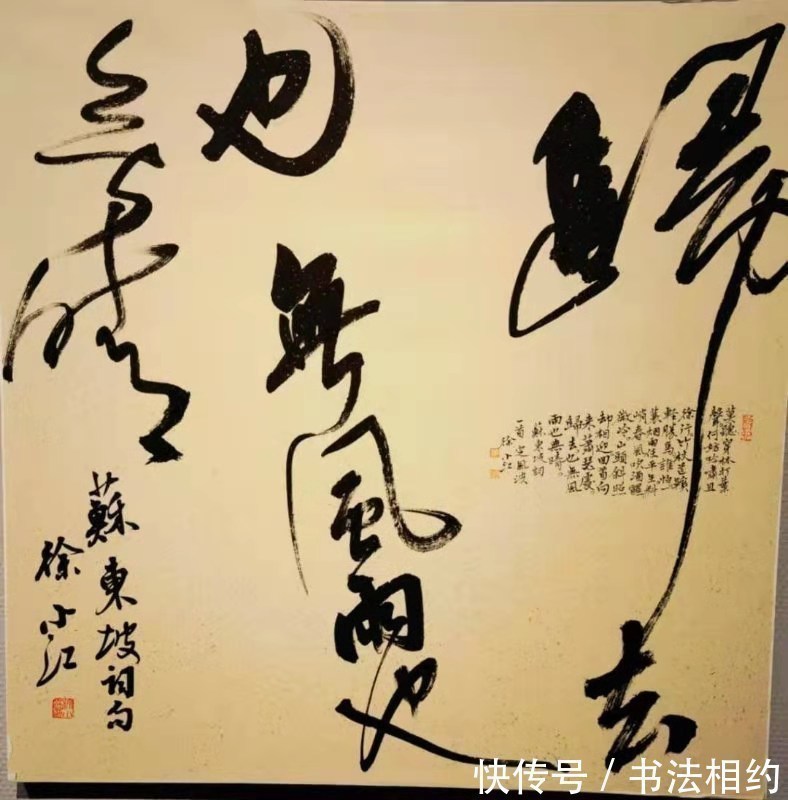 歸去
也無風雨也
無晴
蘇東坡詞句
徐小江
莫聽穿林打葉
聲何妨吟嘯且
徐行竹杖芒鞋
輕勝馬誰怕一
蓑烟雨任平生料
峭春風吹酒醒
微冷山頭斜照
却相迎回首向
來蕭瑟處
歸去也無風
雨也無晴
蘇東坡詞
一首定風波
徐小江
快传号/书法相约